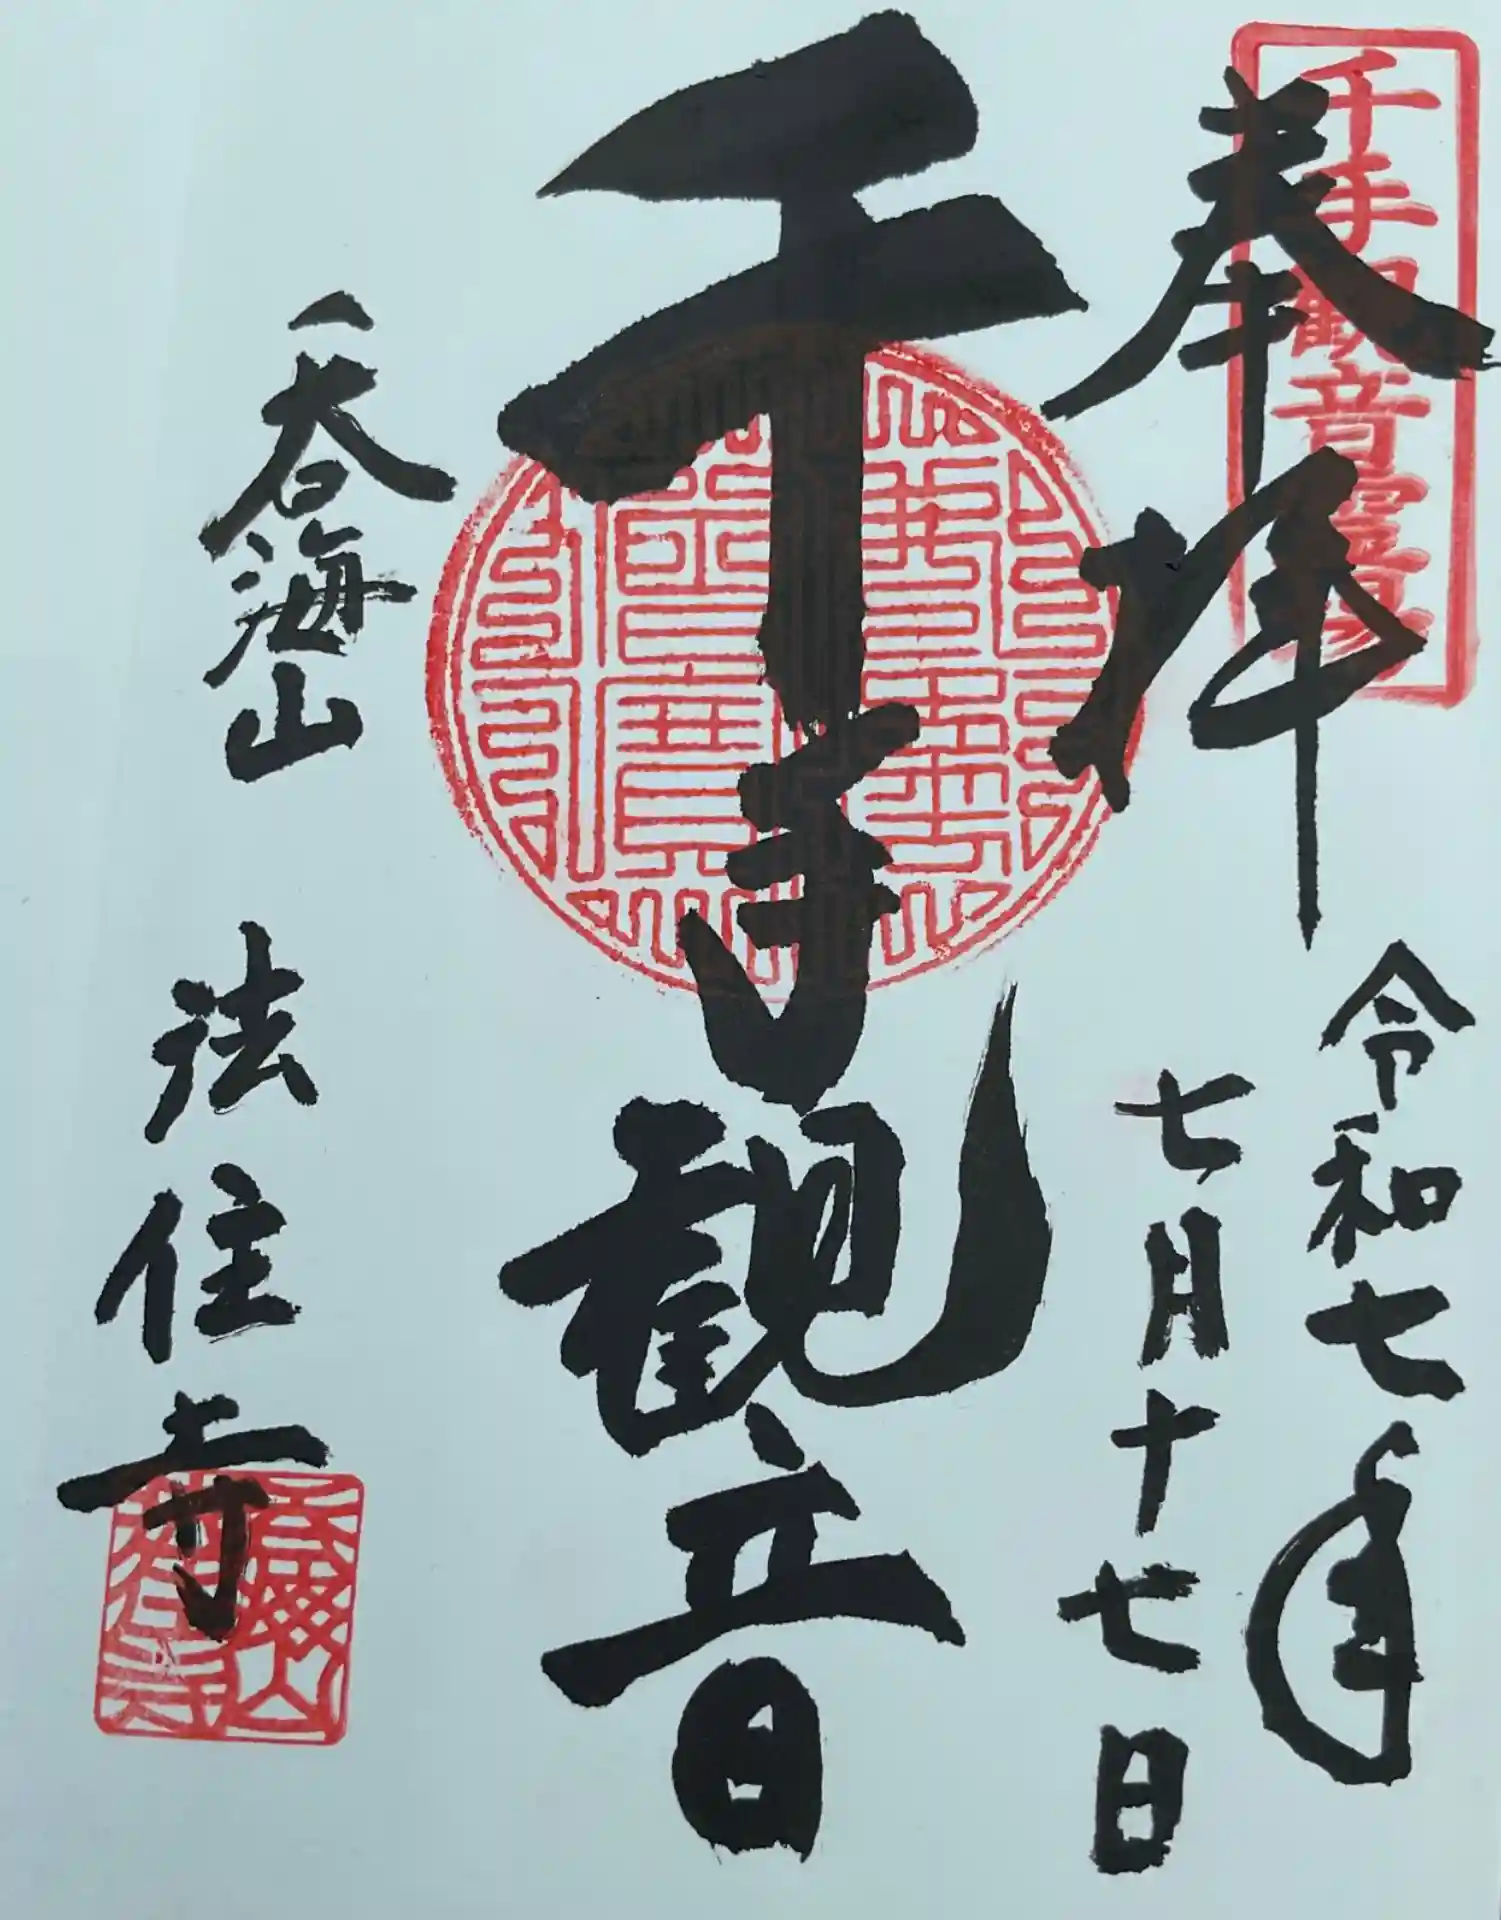 千手観音霊場
奉拝
令和七年
七月十七日
千手観音
吞海山 法住寺